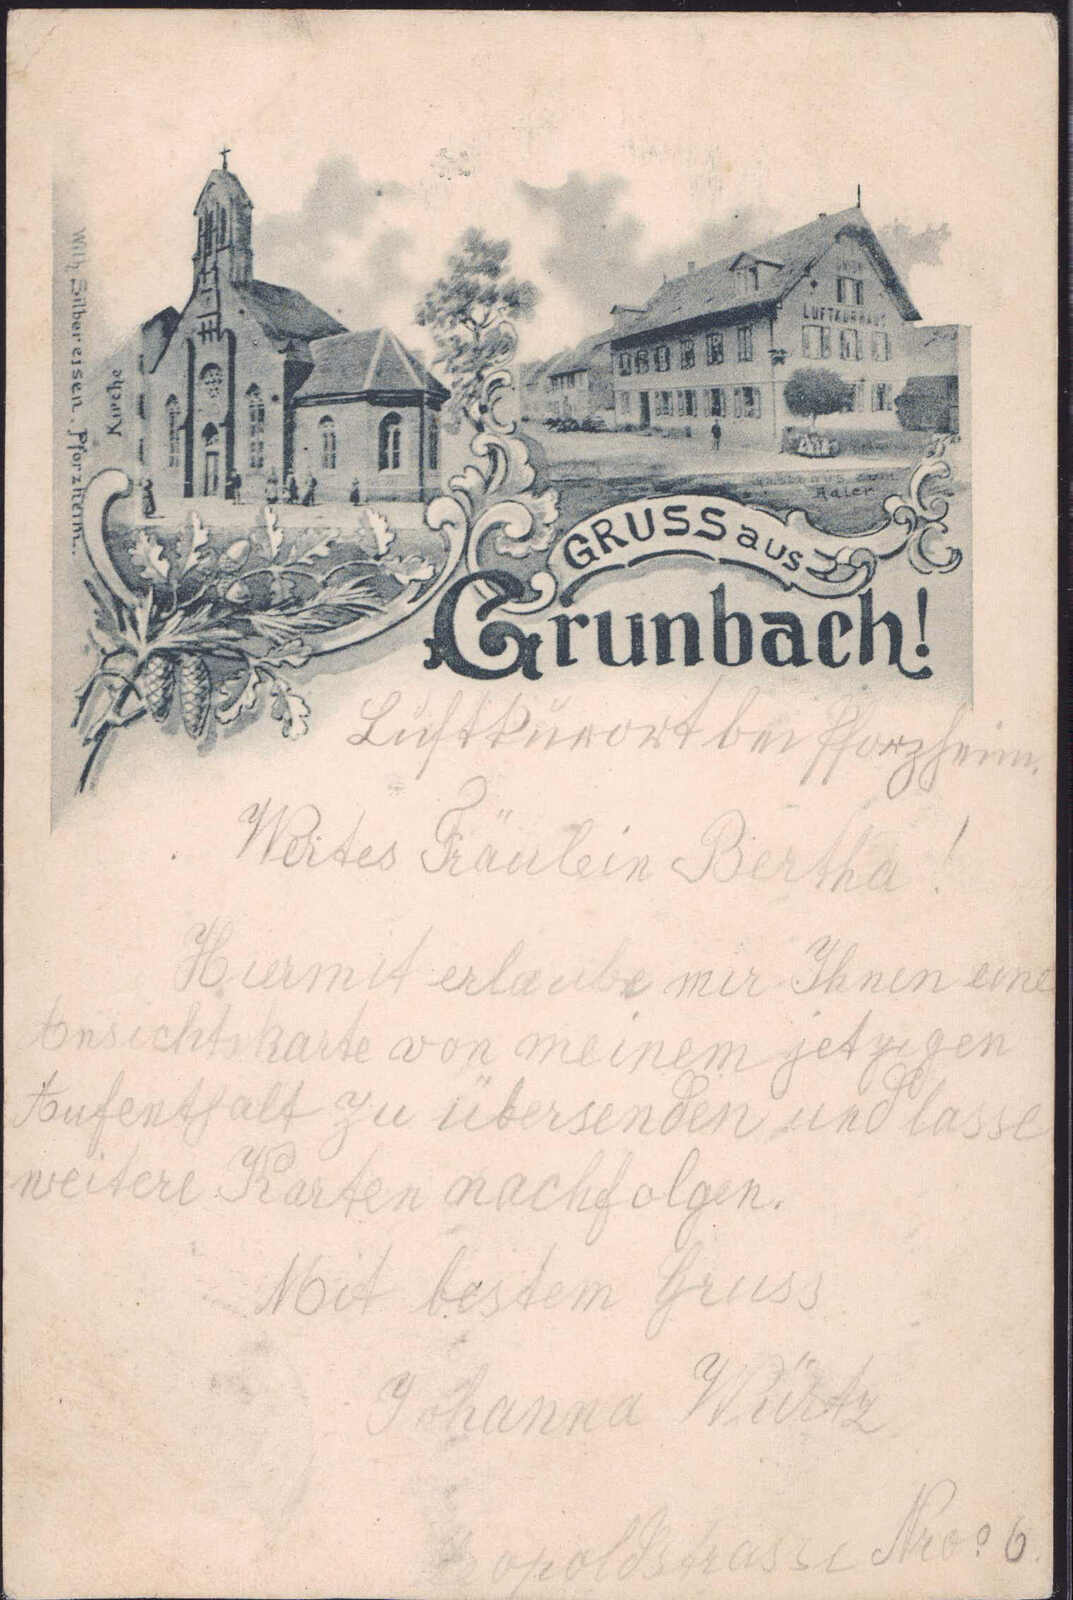 Wilh. Silbereisen. Pforzheim.
Kirche
LUFTKURHAUS
Gasthaus zum
Adler
GRUSS aus
Grunbach!
Luftkurort bei Pforzheim.
Wertes Fräulein Bertha!
Hiermit erlaube mir Ihnen eine
Ansichtskarte von meinem jetzigen
Aufenthalt zu übersenden und lasse
weitere Karten nachfolgen.
Mit bestem Gruss
Johanna Würtz
Leopoldstrasse Nro. 6.